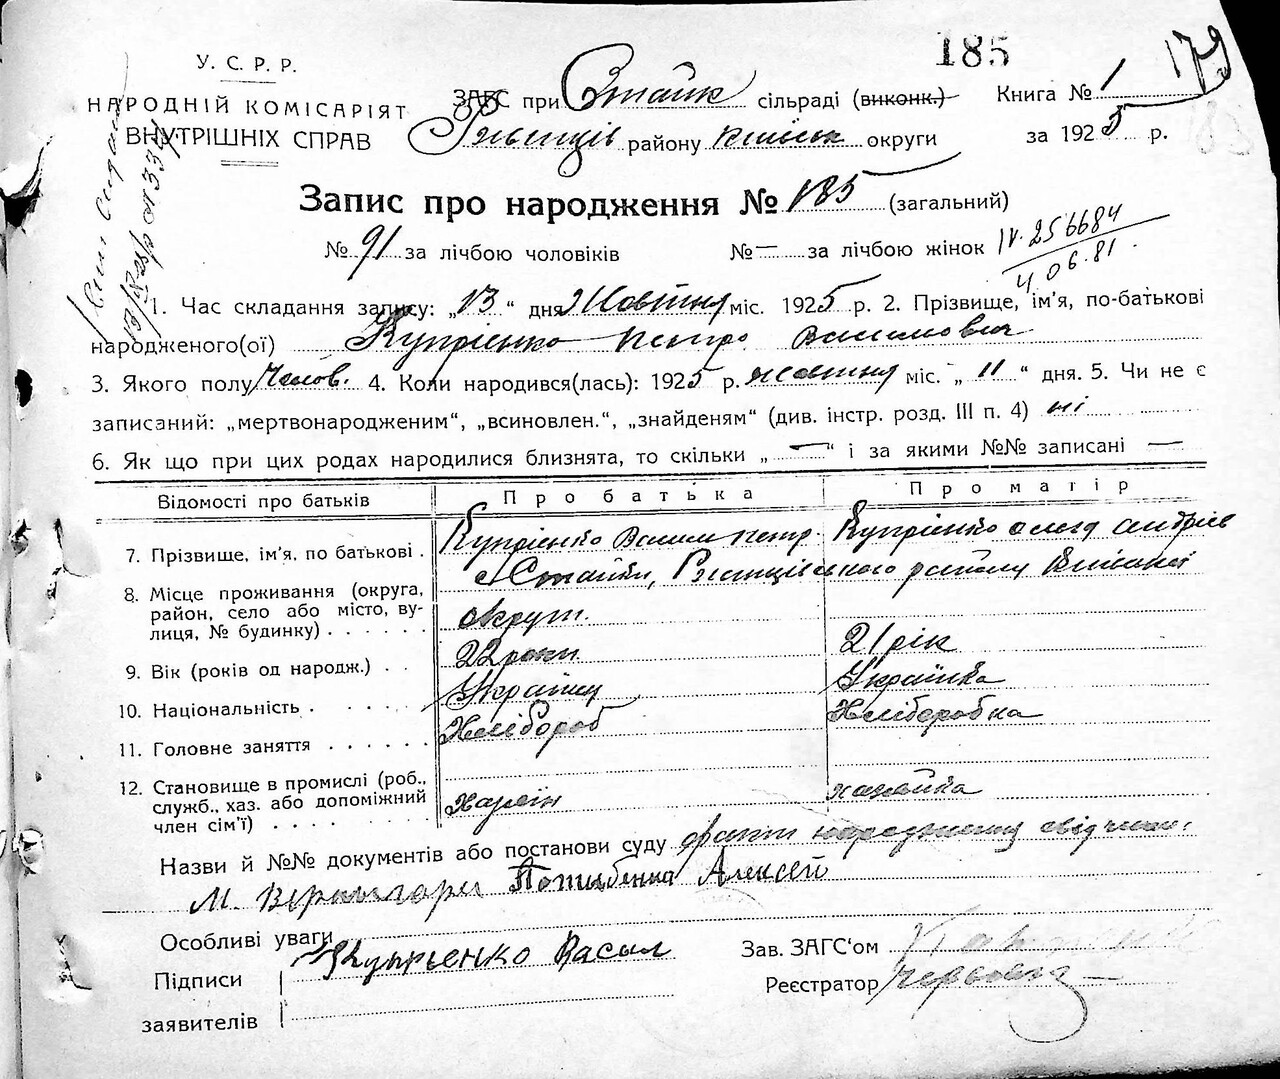 185
179
У. С. Р. Р.
НАРОДНІЙ КОМІСАРІЯТ
ВНУТРІШНІХ СПРАВ
ЗАГС при Стайк сільраді (виконк.) Книга № 1
Ржищів району Київськ округи за 1925 р.
Запис про народження № 185 (загальний)
№ 91 за лічбою чоловіків № — за лічбою жінок
IV. 256684
4 06.81.
1. Час складання запису: „13“ дня Жовтня міс. 1925 р. 2. Прізвище, ім'я, по-батькові
народженого(ої) Купрієнко Петро Васильович
3. Якого полу Чолов. 4. Коли народився(лась): 1925 р. жовтня міс. „11“ дня. 5. Чи не є
записаний: „мертвонародженим“, „всиновлен.“, „знайденям“ (див. інстр. розд. III п. 4) ні
6. Як що при цих родах народилися близнята, то скільки „—“ і за якими №№ записані —
Відомості про батьків Про батька Про матір
7. Прізвище, ім'я, по батькові . Купрієнко Васил Петр. Купрієнко Андріев
8. Місце проживання (округа, с Стайки, Ржищівського району Київської
район, село або місто, ву-
лиця, № будинку) . . . . . . округи.
9. Вік (років од народж.) . . 22 роки 21 рік
10. Національність . . . . . . Українц Українка
11. Головне заняття . . . . . . Хлібороб Хліборобка
12. Становище в промислі (роб.,
служб., хаз. або допоміжний хазяїн хазяйка
член сім'ї) . . . . . . . .
Назви й №№ документів або постанови суду факт народження свідчили:
М. Вернигора Потибенко Алексей
Особливі уваги
Підписи Купрьенко Васил Зав. ЗАГС'ом
заявителів Реєстратор